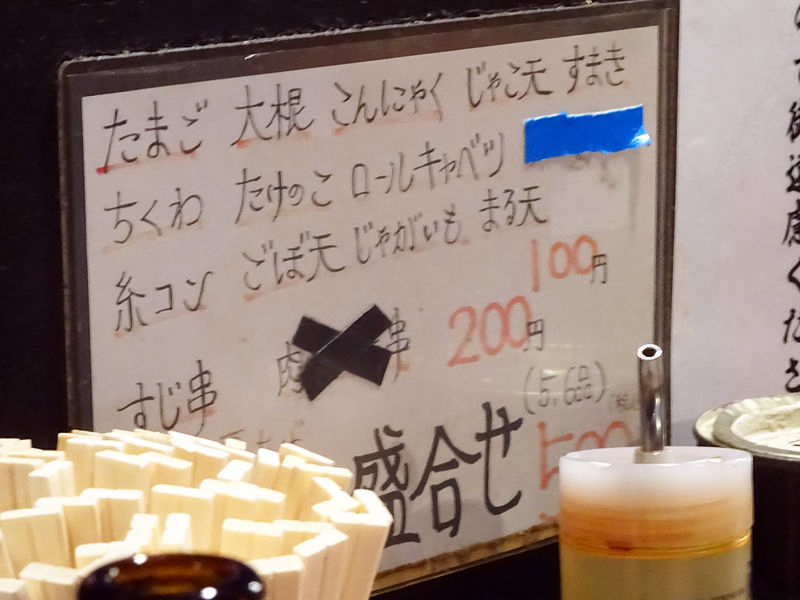 たまご 大根 こんにゃく じゃこ天 すまき
ちくわ たけのこ ロールキャベツ
糸コン ごぼ天 じゃがいも まる天
100円
すじ串 肉 串 200円
(5.6品)
盛合せ 500
御遠慮くださ